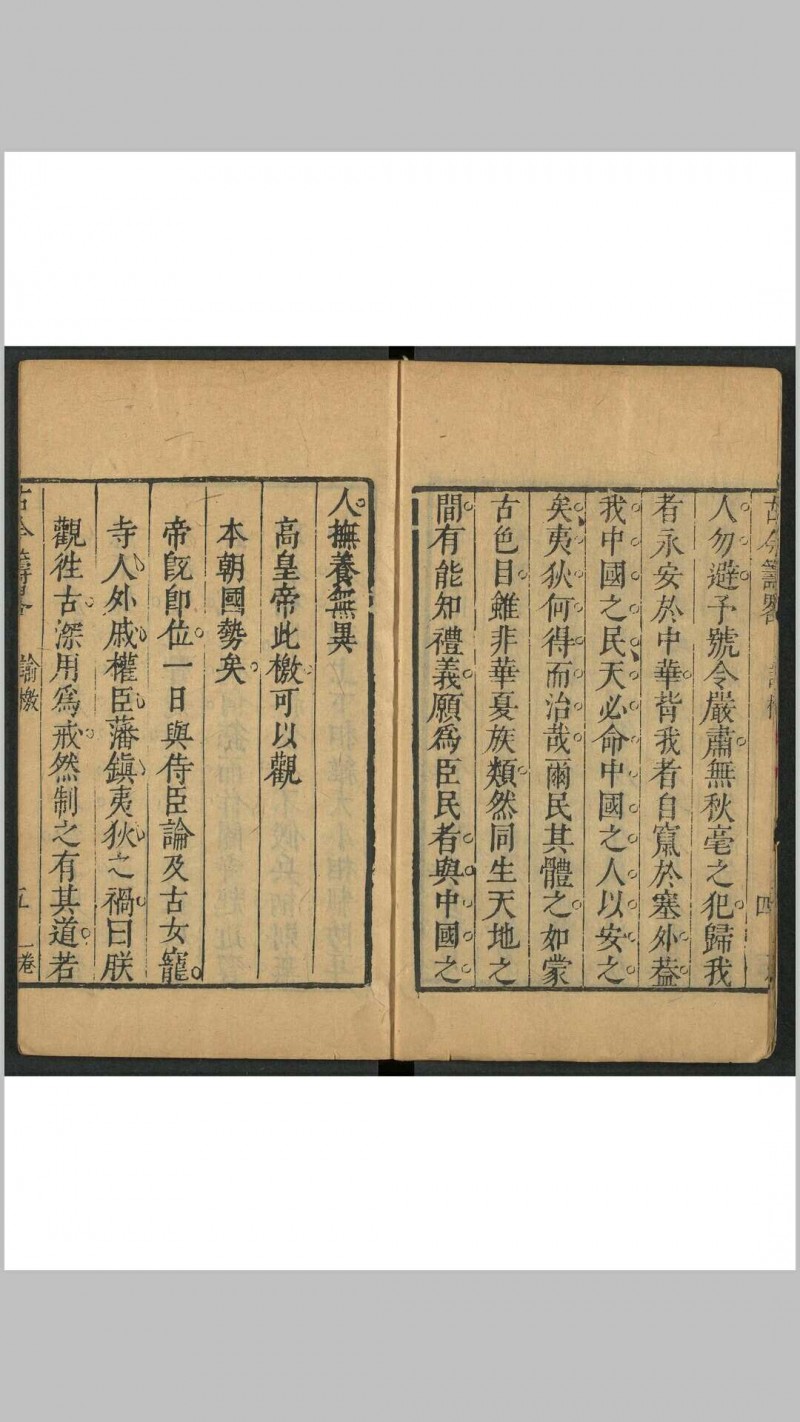 人勿避予號令嚴肅無秋毫之犯歸我
者永安於中華背我者自竄於塞外葢
我中國之民天必命中國之人以安之
矣夷狄何得而治哉爾民其體之如蒙
古色目雖非華夏族類然同生天地之
間有能知禮義願爲臣民者與中國之
人撫養無異
高皇帝此檄可以觀
本朝國勢矣
帝旣卽位一日與侍臣論及古女寵
寺人外戚權臣藩鎭夷狄之禍曰朕
觀徃古深用爲戒然制之有其道若
諭檄 五 一卷